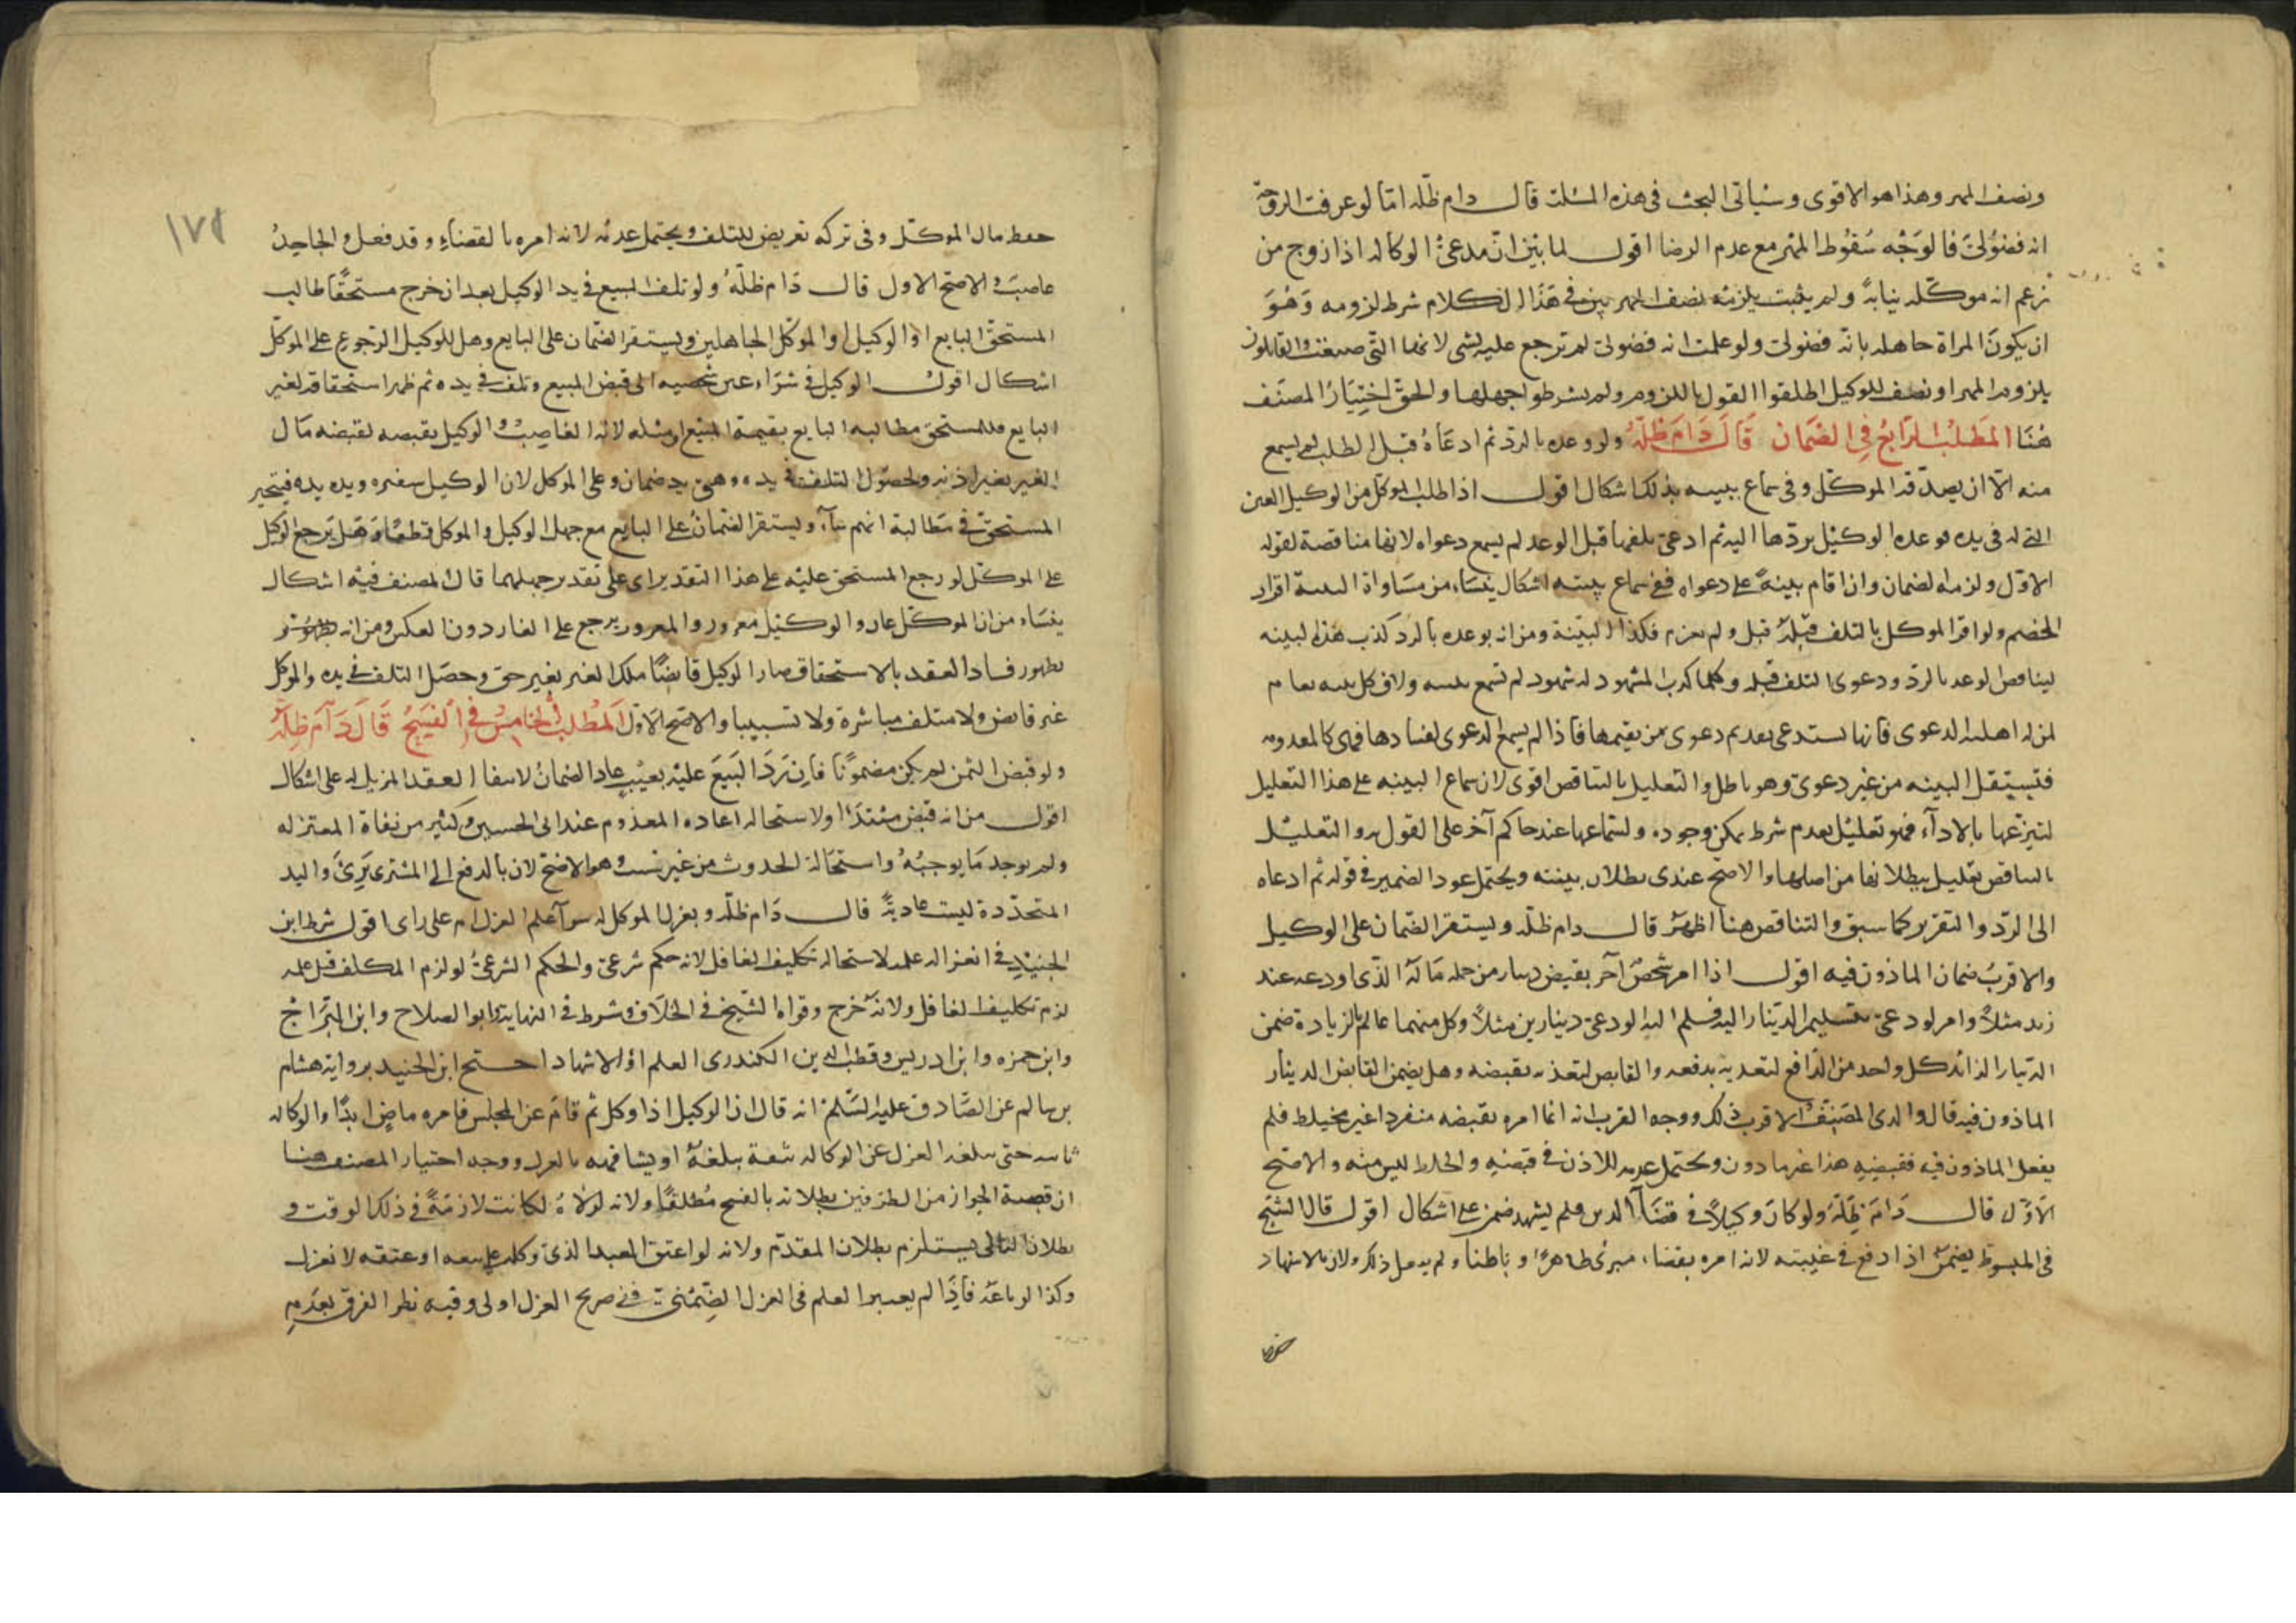 ونصف المهر وهذا هو الاقوى وسياتى البحث فى هذه المسئلة قال دام ظله اما لو عرفت الزوجة
انه فضولى فالوجه سقوط المهر مع عدم الرضا اقول لما بين ان مدعى الوكالة اذا زوج من
زعم انه موكله نيابة ولم يثبت يلزمه نصف المهر بين فى هذا الكلام شرط لزومه وهو
ان يكون المراة جاهلة بانه فضولى ولو علمت انه فضولى لم ترجع عليه بشى لانها التى ضيعت والقايلون
بلزوم المهر او نصفه للوكيل اطلقوا القول باللزوم ولم يشرطوا جهلها والحق اختيار المصنف
هنا المطلب الرابع فى الضمان قال دام ظله ولو وعده بالرد ثم ادعاه قبل الطلب لم يسمع
منه الا ان يصدقه الموكل وفى سماع بينته بذلك اشكال اقول اذا طلب الموكل من الوكيل العين
التى له فى يده فوعده الوكيل بردها اليه ثم ادعى تلفها قبل الوعد لم يسمع دعواه لانها مناقضة لقوله
الاول ولزمه الضمان وان اقام بينة على دعواه ففى سماع بينته اشكال ينشاء من مساواة البينة اقرار
الخصم ولو اقر الموكل بالتلف قبله قبل ولم يغرم فكذا البينة ومن انه بوعده بالرد كذب هذه البينة
ليناقض الوعد بالرد ودعوى التلف قبله وكلما كذب المشهود له شهوده لم تسمع بينته ولان كل بينة تقام
لمن له اهلية الدعوى فانها تستدعى تقدم دعوى من يقيمها فاذا لم يسمع الدعوى لفسادها فهى كالمعدومة
فتستقل البينة من غير دعوى وهو باطل والتعليل بالتناقض اقوى لان سماع البينة على هذا التعليل
لتبرعها بالاداء فهو تعليل بعدم شرط يمكن وجوده ولسماعها عند حاكم آخر على القول به والتعليل
بالتناقض تعليل ببطلانها من اصلها والاصح عندى بطلان بينته ويحتمل عود الضمير فى قوله ثم ادعاه
الى الرد والتقرير كما سبق والتناقض هنا اظهر قال دام ظله ويستقر الضمان على الوكيل
والاقرب ضمان الماذون فيه اقول اذا امر شخص آخر بقبض دينار من جملة ماله الذى اودعه عند
زيد مثلا وامر الودعى بتسليم الدينار اليه فسلم اليه الودعى دينارين مثلا وكل منهما عالم بالزيادة ضمن
الدينار الزائد كل واحد من الدافع لتعديه بدفعه والقابض لتعديه بقبضه وهل يضمن القابض الدينار
الماذون فيه قال والدى المصنف الاقرب ذلك ووجه القرب انه انما امره بقبضه منفردا غير مختلط فلم
يفعل الماذون فيه فقبضه هذا غير ماذون ويحتمل عدمه للاذن فى قبضه والخلط ليس منه والاصح
الاول قال دام ظله ولو كان وكيلا فى قضاء الدين فلم يشهد ضمن على اشكال اقول قال الشيخ
فى المبسوط يضمن اذا دفع فى غيبته لانه امره بقضاء مبرئ ظاهرا وباطنا ولم يفعل ذلك ولان بالاشهاد
حفظ
حفظ مال الموكل وفى تركه تعريض للتلف ويحتمل عدمه لانه امره بالقضاء وقد فعل والجاحد
غاصب والاصح الاول قال دام ظله ولو تلف المبيع فى يد الوكيل بعد ان خرج مستحقا طالب
المستحق البايع او الوكيل او الموكل الجاهلين ويستقر الضمان على البايع وهل للوكيل الرجوع على الموكل
اشكال اقول الوكيل فى شراء عين شخصية الى قبض المبيع وتلف فى يده ثم ظهر استحقاقه لغير
البايع فللمستحق مطالبة البايع بقيمة المبيع او مثله لانه الغاصب والوكيل بقبضه لقبضه مال
الغير بغير اذنه ولحصول التلف فى يده وهى يد ضمان وعلى الموكل لان الوكيل سفيره ويده يده فيتخير
المستحق فى مطالبة ايهم شاء ويستقر الضمان على البايع مع جهل الوكيل والموكل قطعا وهل يرجع الوكيل
على الموكل لو رجع المستحق عليه على هذا التقدير اى على تقدير جهلهما قال المصنف فيه اشكال
ينشاء من ان الموكل غار والوكيل مغرور والمغرور يرجع على الغار دون العكس ومن انه
بظهور فساد العقد بالاستحقاق صار الوكيل قابضا ملك الغير بغير حق وحصل التلف فى يده والموكل
غير قابض ولا متلف مباشرة ولا تسبيبا والاصح الاول المطلب الخامس فى الفسخ قال دام ظله
ولو قبض الثمن لم يكن مضمونا فان رد المبيع عليه بعيب عاد الضمان لانتفاء العقد المزيل له على اشكال
اقول من انه قبض مبتدأ ولاستحالة اعادة المعدوم عند ابى الحسين وكثير من نفاة المعتزله
ولم يوجد ما يوجبه واستحالة الحدوث من غير سبب وهو الاصح لان بالدفع الى المشترى برئ واليد
المتجددة ليست عادية قال دام ظله وبعزل الموكل له سوآ اعلم العزل ام على راى اقول شرط ابن
الجنيد فى انعزاله علمه لاستحالة تكليف الغافل لانه حكم شرعى والحكم الشرعى لو لزم المكلف قبل علمه
لزم تكليف الغافل ولانه حرج وقواه الشيخ فى الخلاف وشرط فى النهاية وابو الصلاح وابن البراج
وابن حمزه وابن ادريس وقطب الدين الكندرى العلم او الاشهاد احتج ابن الجنيد برواية هشام
بن سالم عن الصادق عليه السلم انه قال ان الوكيل اذا وكل ثم قام عن المجلس فامره ماض ابدا والوكالة
ثابتة حتى يبلغه العزل عن الوكالة بثقة يبلغه او يشافهه بالعزل ووجه اختيار المصنف هنا
ان قضية الجواز من الطرفين بطلانه بالفسخ مطلقا ولانه لولاه لكانت لازمة فى ذلك الوقت و
بطلان التالى يستلزم بطلان المقدم ولانه لو اعتق العبد الذى وكله على بيعه او عتقه لانعزل
وكذا لو باعه فاذا لم يعتبر العلم فى العزل الضمنى ففى صريح العزل اولى وفيه نظر الفرق بعدم